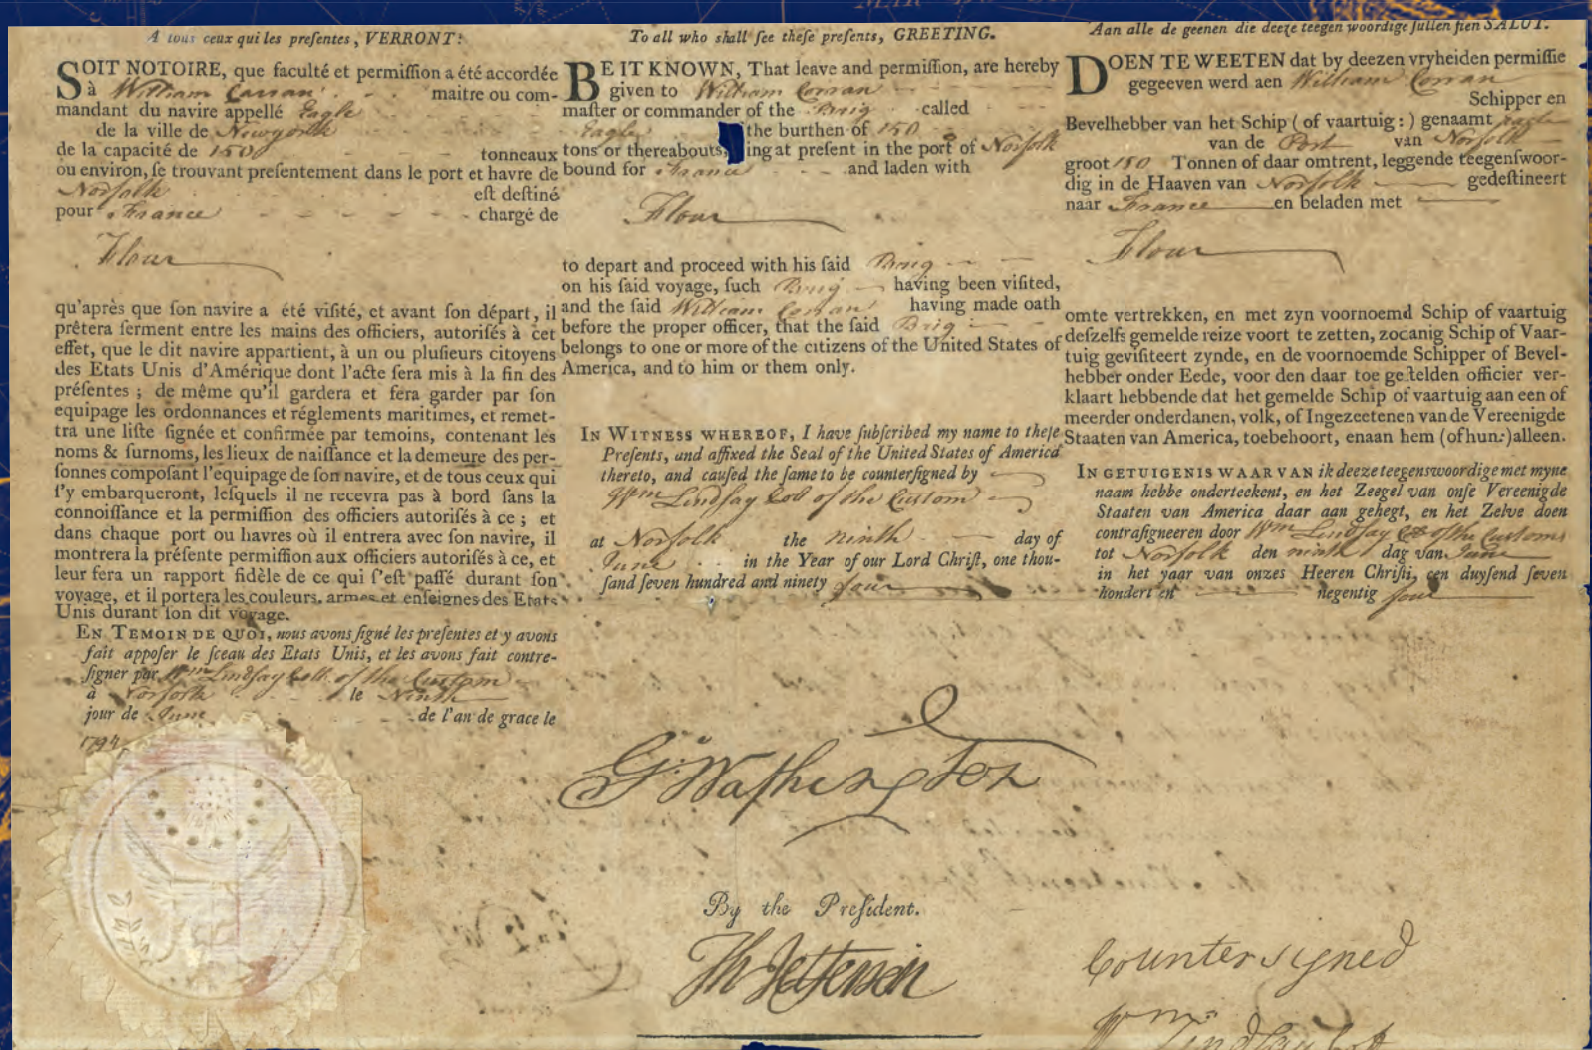 A tous ceux qui les preſentes, VERRONT:
SOIT NOTOIRE, que faculté et permiſſion a été accordée
à William Corran maitre ou com-
mandant du navire appellé Eagle
de la ville de Newyork
de la capacité de 150 tonneaux
ou environ, ſe trouvant preſentement dans le port et havre de
Norfolk eſt deſtiné
pour France chargé de
Flour
qu'après que ſon navire a été viſité, et avant ſon départ, il
prêtera ſerment entre les mains des officiers, autoriſés à cet
effet, que le dit navire appartient, à un ou pluſieurs citoyens
des Etats Unis d'Amérique dont l'aćte ſera mis à la fin des
préſentes ; de même qu'il gardera et fera garder par ſon
equipage les ordonnances et réglements maritimes, et remet-
tra une liſte ſignée et confirmée par temoins, contenant les
noms & ſurnoms, les lieux de naiſſance et la demeure des per-
ſonnes compoſant l'equipage de ſon navire, et de tous ceux qui
ſ'y embarqueront, leſquels il ne recevra pas à bord ſans la
connoiſſance et la permiſſion des officiers autoriſés à ce ; et
dans chaque port ou havres où il entrera avec ſon navire, il
montrera la préſente permiſſion aux officiers autoriſés à ce, et
leur fera un rapport fidèle de ce qui ſ'eſt paſſé durant ſon
voyage, et il portera les couleurs, armes et enſeignes des Etats
Unis durant ſon dit voyage.
EN TEMOIN DE QUOI, nous avons ſigné les preſentes et y avons
fait appoſer le ſceau des Etats Unis, et les avons fait contre-
ſigner par Wm Lindſay Coll. of the Custom
à Norfolk le Ninth
jour de June de l'an de grace le
1794
To all who ſhall ſee theſe preſents, GREETING.
BE IT KNOWN, That leave and permiſſion, are hereby
given to William Corran
maſter or commander of the Brig called
Eagle the burthen of 150
tons or thereabouts, ing at preſent in the port of Norfolk
bound for France and laden with
Flour
to depart and proceed with his ſaid Brig
on his ſaid voyage, ſuch Brig having been viſited,
and the ſaid William Corran having made oath
before the proper officer, that the ſaid Brig
belongs to one or more of the citizens of the United States of
America, and to him or them only.
IN WITNESS WHEREOF, I have ſubſcribed my name to theſe
Preſents, and affixed the Seal of the United States of America
thereto, and cauſed the ſame to be counterſigned by
Wm Lindſay Col of the Custom
at Norfolk the ninth day of
June in the Year of our Lord Chriſt, one thou-
ſand ſeven hundred and ninety four
Aan alle de geenen die deeze teegen woordige ſullen ſien SALUT.
DOEN TE WEETEN dat by deezen vryheiden permiſſie
gegeeven werd aen William Corran
Schipper en
Bevelhebber van het Schip ( of vaartuig : ) genaamt Eagle
van de Port van Norfolk
groot 150 Tonnen of daar omtrent, leggende teegenſwoor-
dig in de Haaven van Norfolk gedeſtineert
naar France en beladen met
Flour
omte vertrekken, en met zyn voornoemd Schip of vaartuig
deſzelfs gemelde reize voort te zetten, zocanig Schip of Vaar-
tuig geviſiteert zynde, en de voornoemde Schipper of Bevel-
hebber onder Eede, voor den daar toe geſtelden officier ver-
klaart hebbende dat het gemelde Schip of vaartuig aan een of
meerder onderdanen, volk, of Ingezeetenen van de Vereenigde
Staaten van America, toebehoort, enaan hem (of hun:) alleen.
IN GETUIGENIS WAAR VAN ik deeze teegenswoordige met myne
naam hebbe onderteekent, en het Zeegel van onſe Vereenigde
Staaten van America daar aan gehegt, en het Zelve doen
contraſigneeren door Wm Lindſay Col of the Customs
tot Norfolk den ninth dag van June
in het yaar van onzes Heeren Chriſti, een duyſend ſeven
hondert en negentig four
Go. Waſhington
By the Preſident.
Th Jefferson
Countersigned
Wm Lindſay Coll